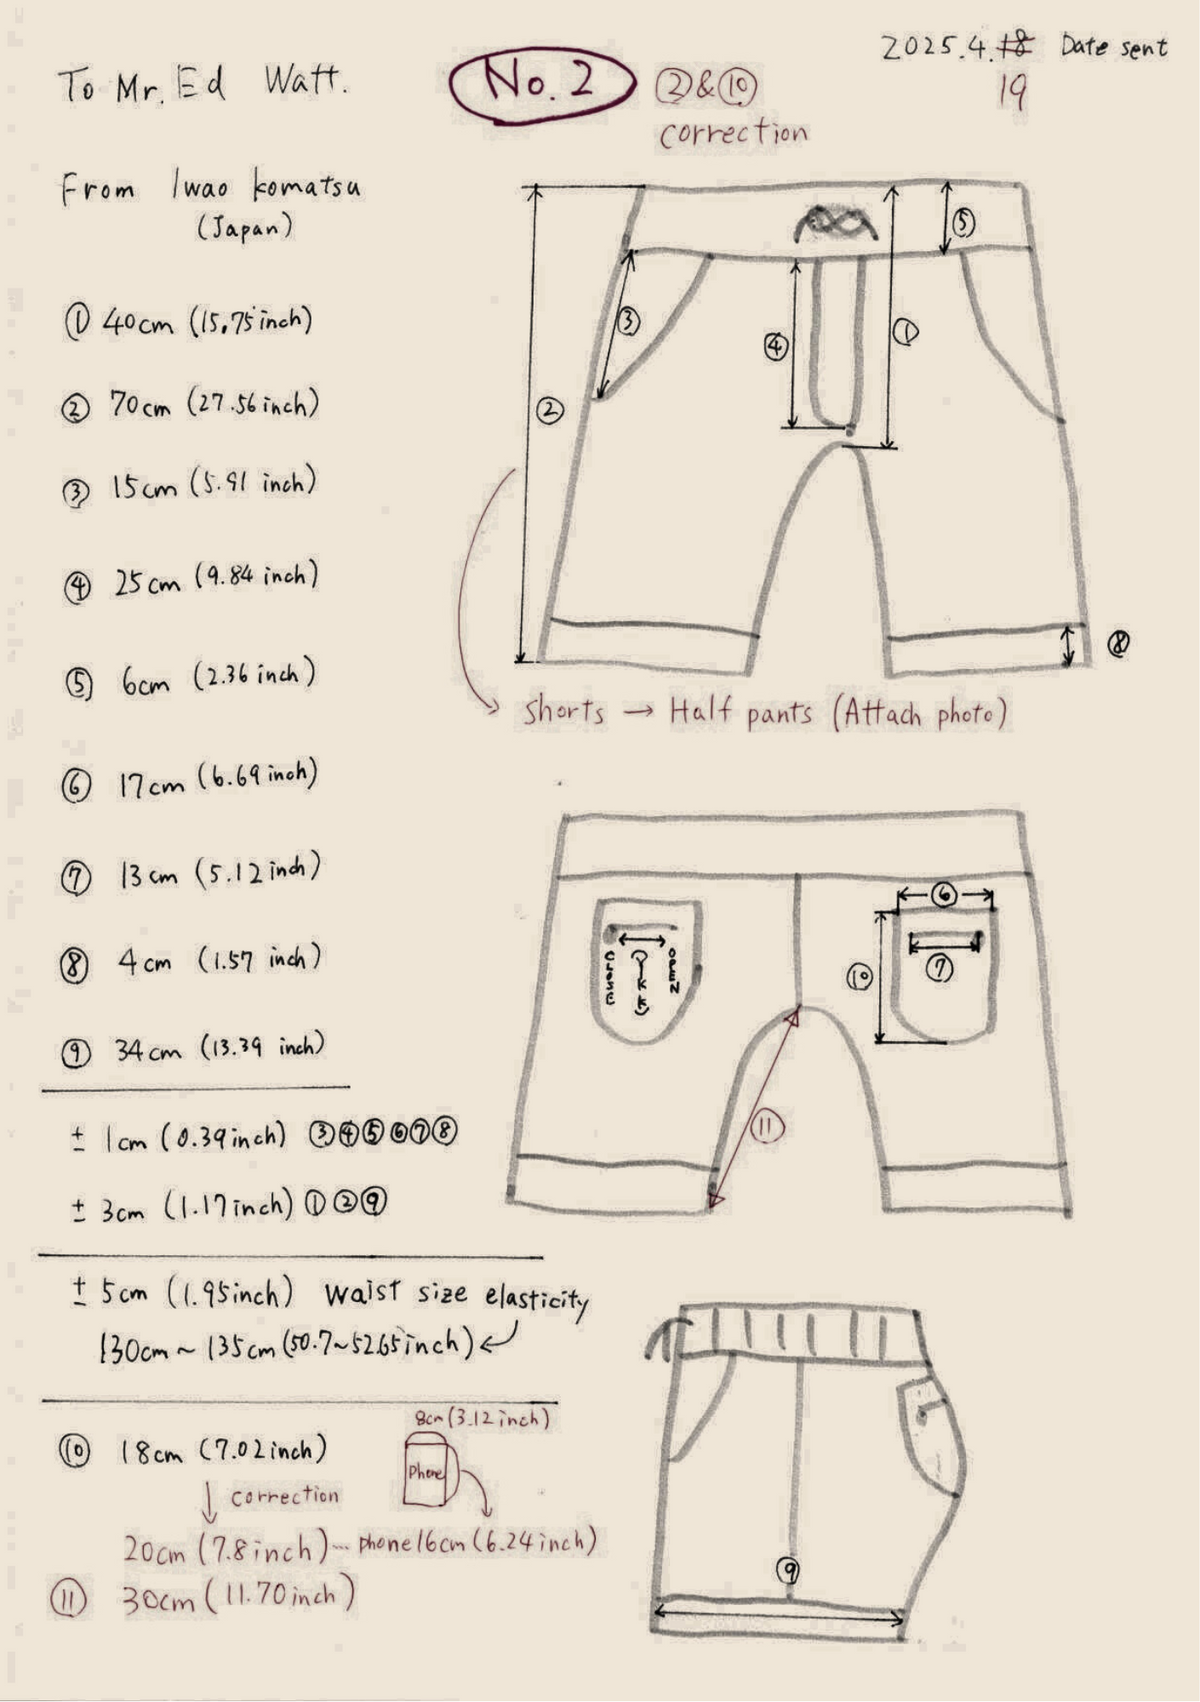 2025.4.18 Date sent
19
To Mr. Ed Watt.
No.2
②&⑩
correction
From Iwao Komatsu
(Japan)
① 40cm (15.75 inch)
② 70cm (27.56 inch)
③ 15cm (5.91 inch)
④ 25cm (9.84 inch)
⑤ 6cm (2.36 inch)
⑥ 17cm (6.69 inch)
⑦ 13cm (5.12 inch)
⑧ 4cm (1.57 inch)
⑨ 34cm (13.39 inch)
± 1cm (0.39 inch) ③④⑤⑥⑦⑧
± 3cm (1.17 inch) ①②⑨
± 5cm (1.95 inch) Waist size elasticity
130cm ~ 135cm (50.7~52.65 inch) ↙
⑩ 18cm (7.02 inch)
↓ correction
20cm (7.8 inch)--- phone 16cm (6.24 inch)
8cm (3.12 inch)
Phone
⑪ 30cm (11.70 inch)
⑤
③
④
①
②
⑧
shorts → Half pants (Attach photo)
⑥
⑦
⑩
CLOSE
OPEN
⑪
⑨